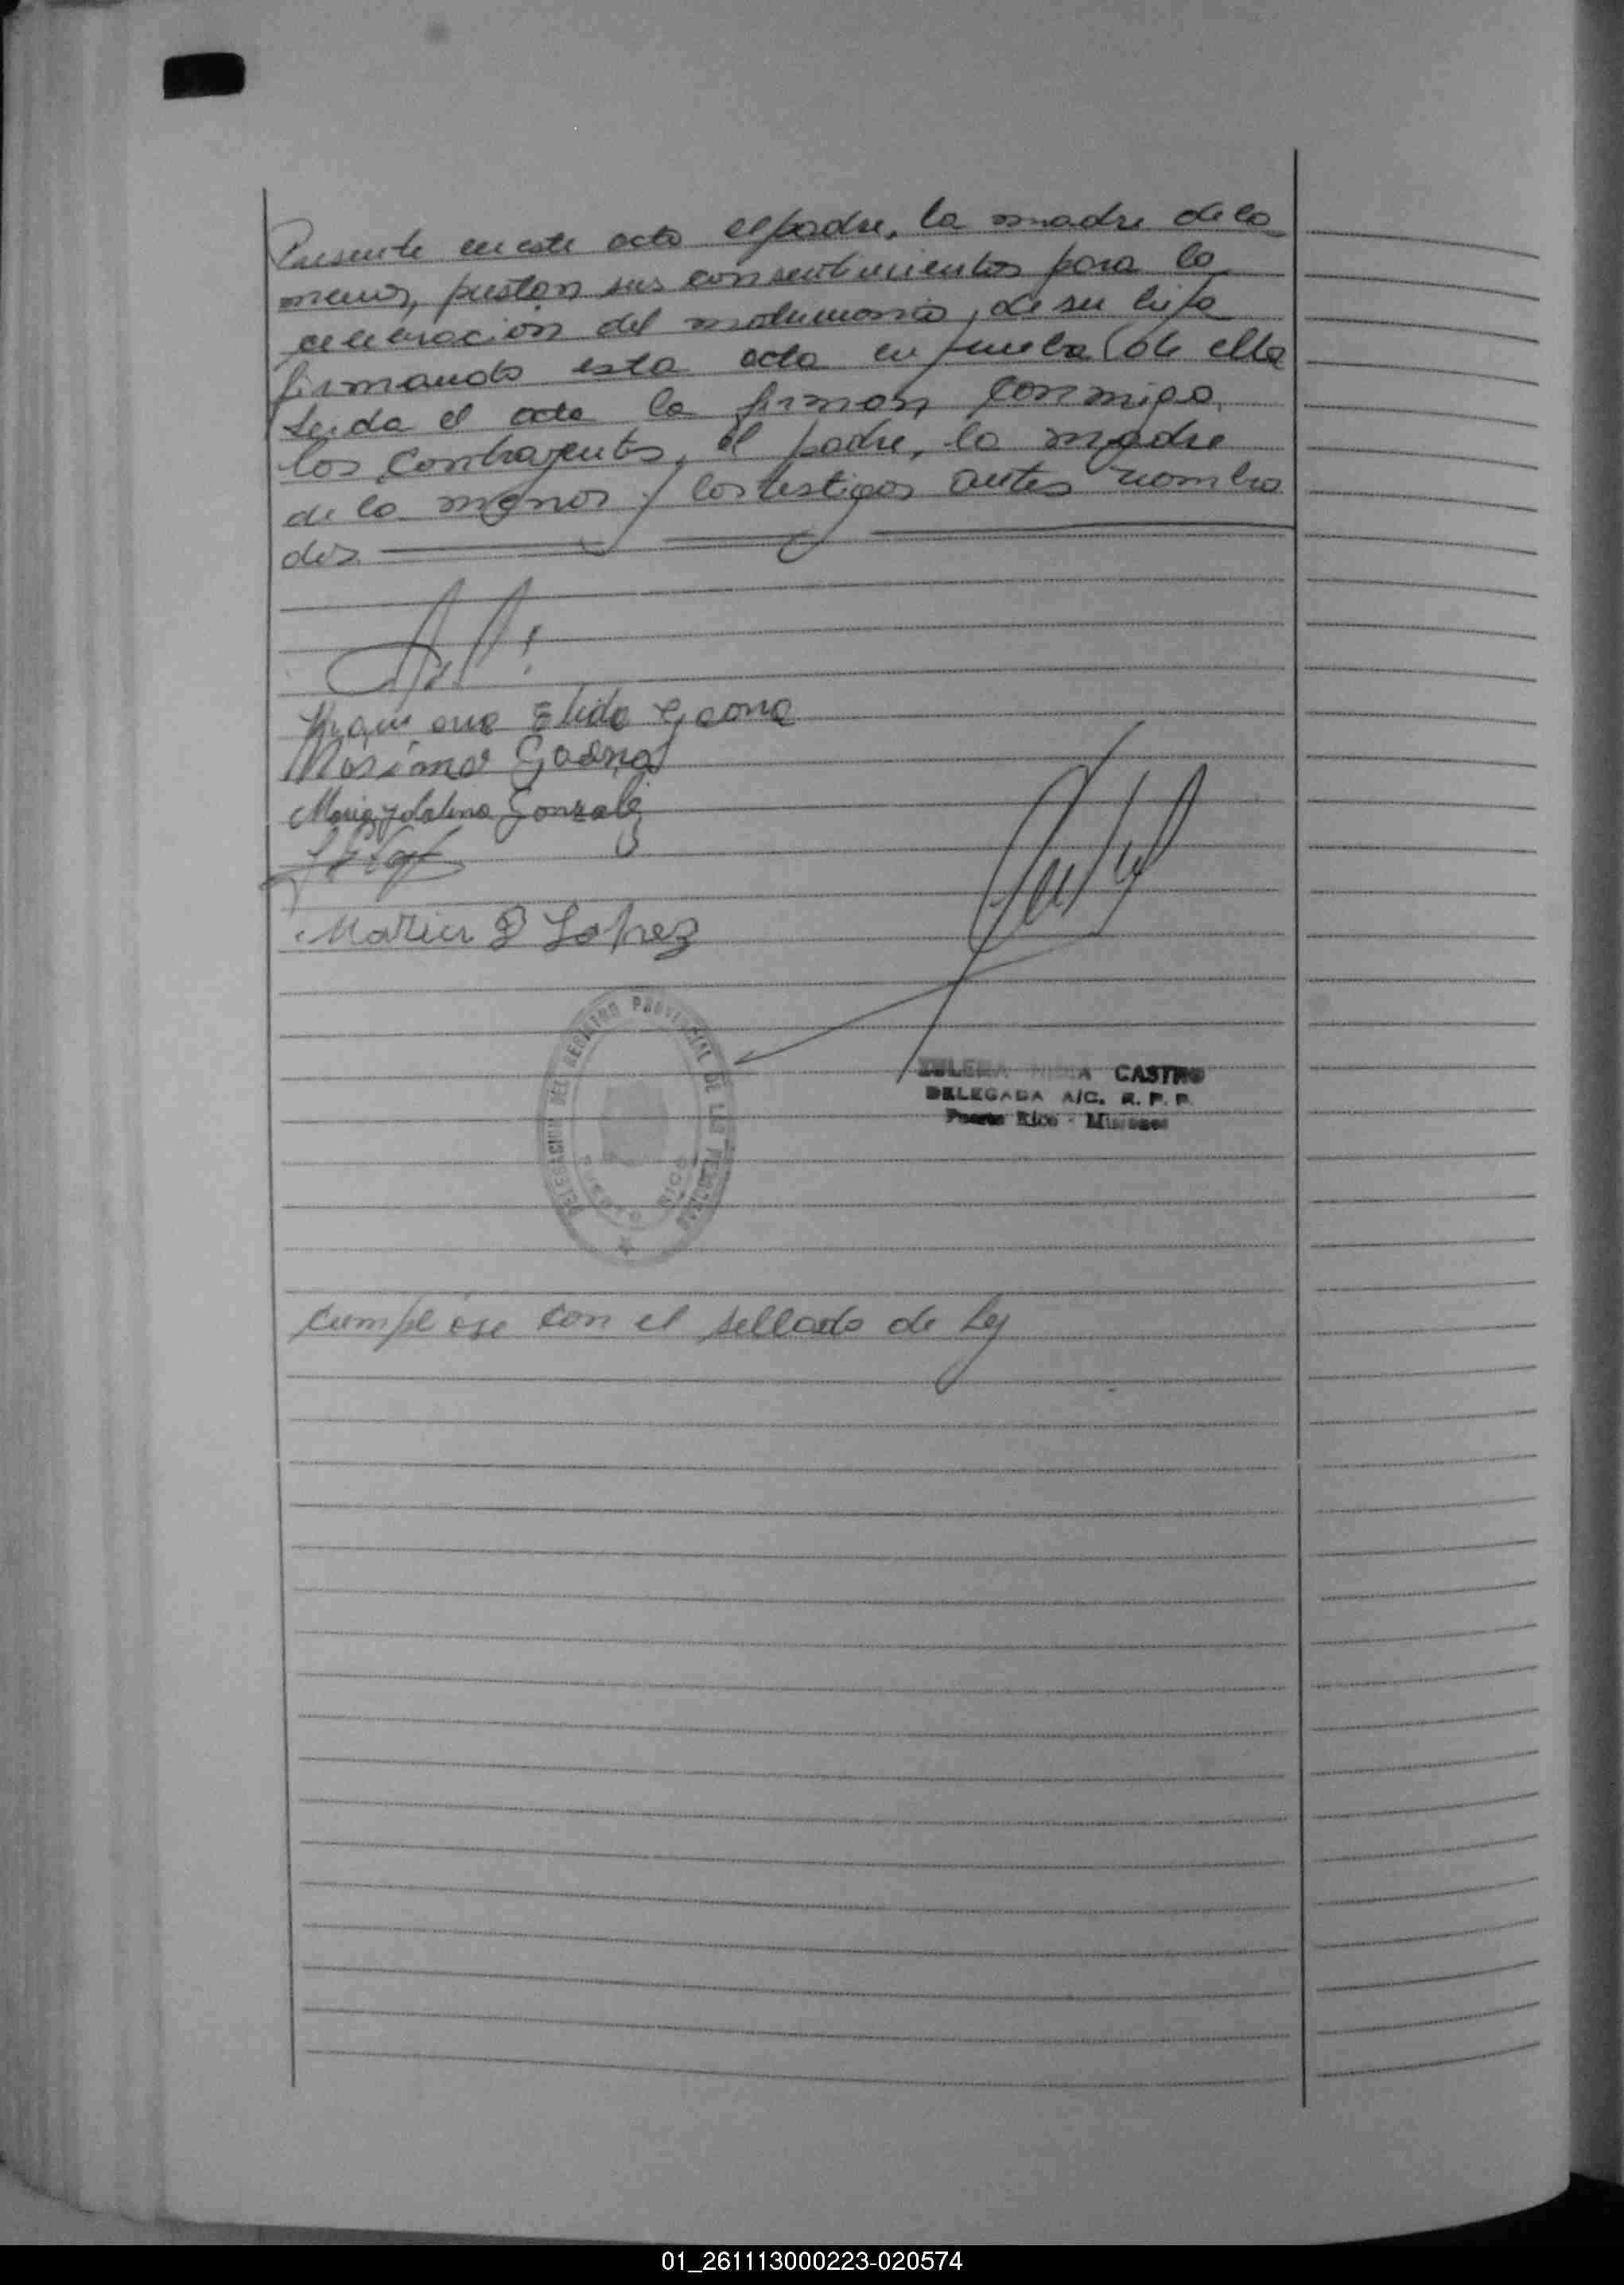 Presente en este acto el padre, la madre de la
menor, prestan sus consentimientos para la
celebración del matrimonio, de su hija
firmando esta acta en prueba de ello
Leida el acta la firman conmigo,
los contrayentes, el padre, la madre
de la menor y los testigos antes nombra
dos.
Elida Gaona
Gaona
Maria Ydalina Gonzalez
Maria D Lopez
DELEGACION DEL REGISTRO PROVINCIAL DE LAS PERSONAS
PUERTO RICO
CASTRO
DELEGADA A/C. R. P. P.
Puerto Rico - Misiones
Cumplase con el sellado de Ley
01_261113000223-020574